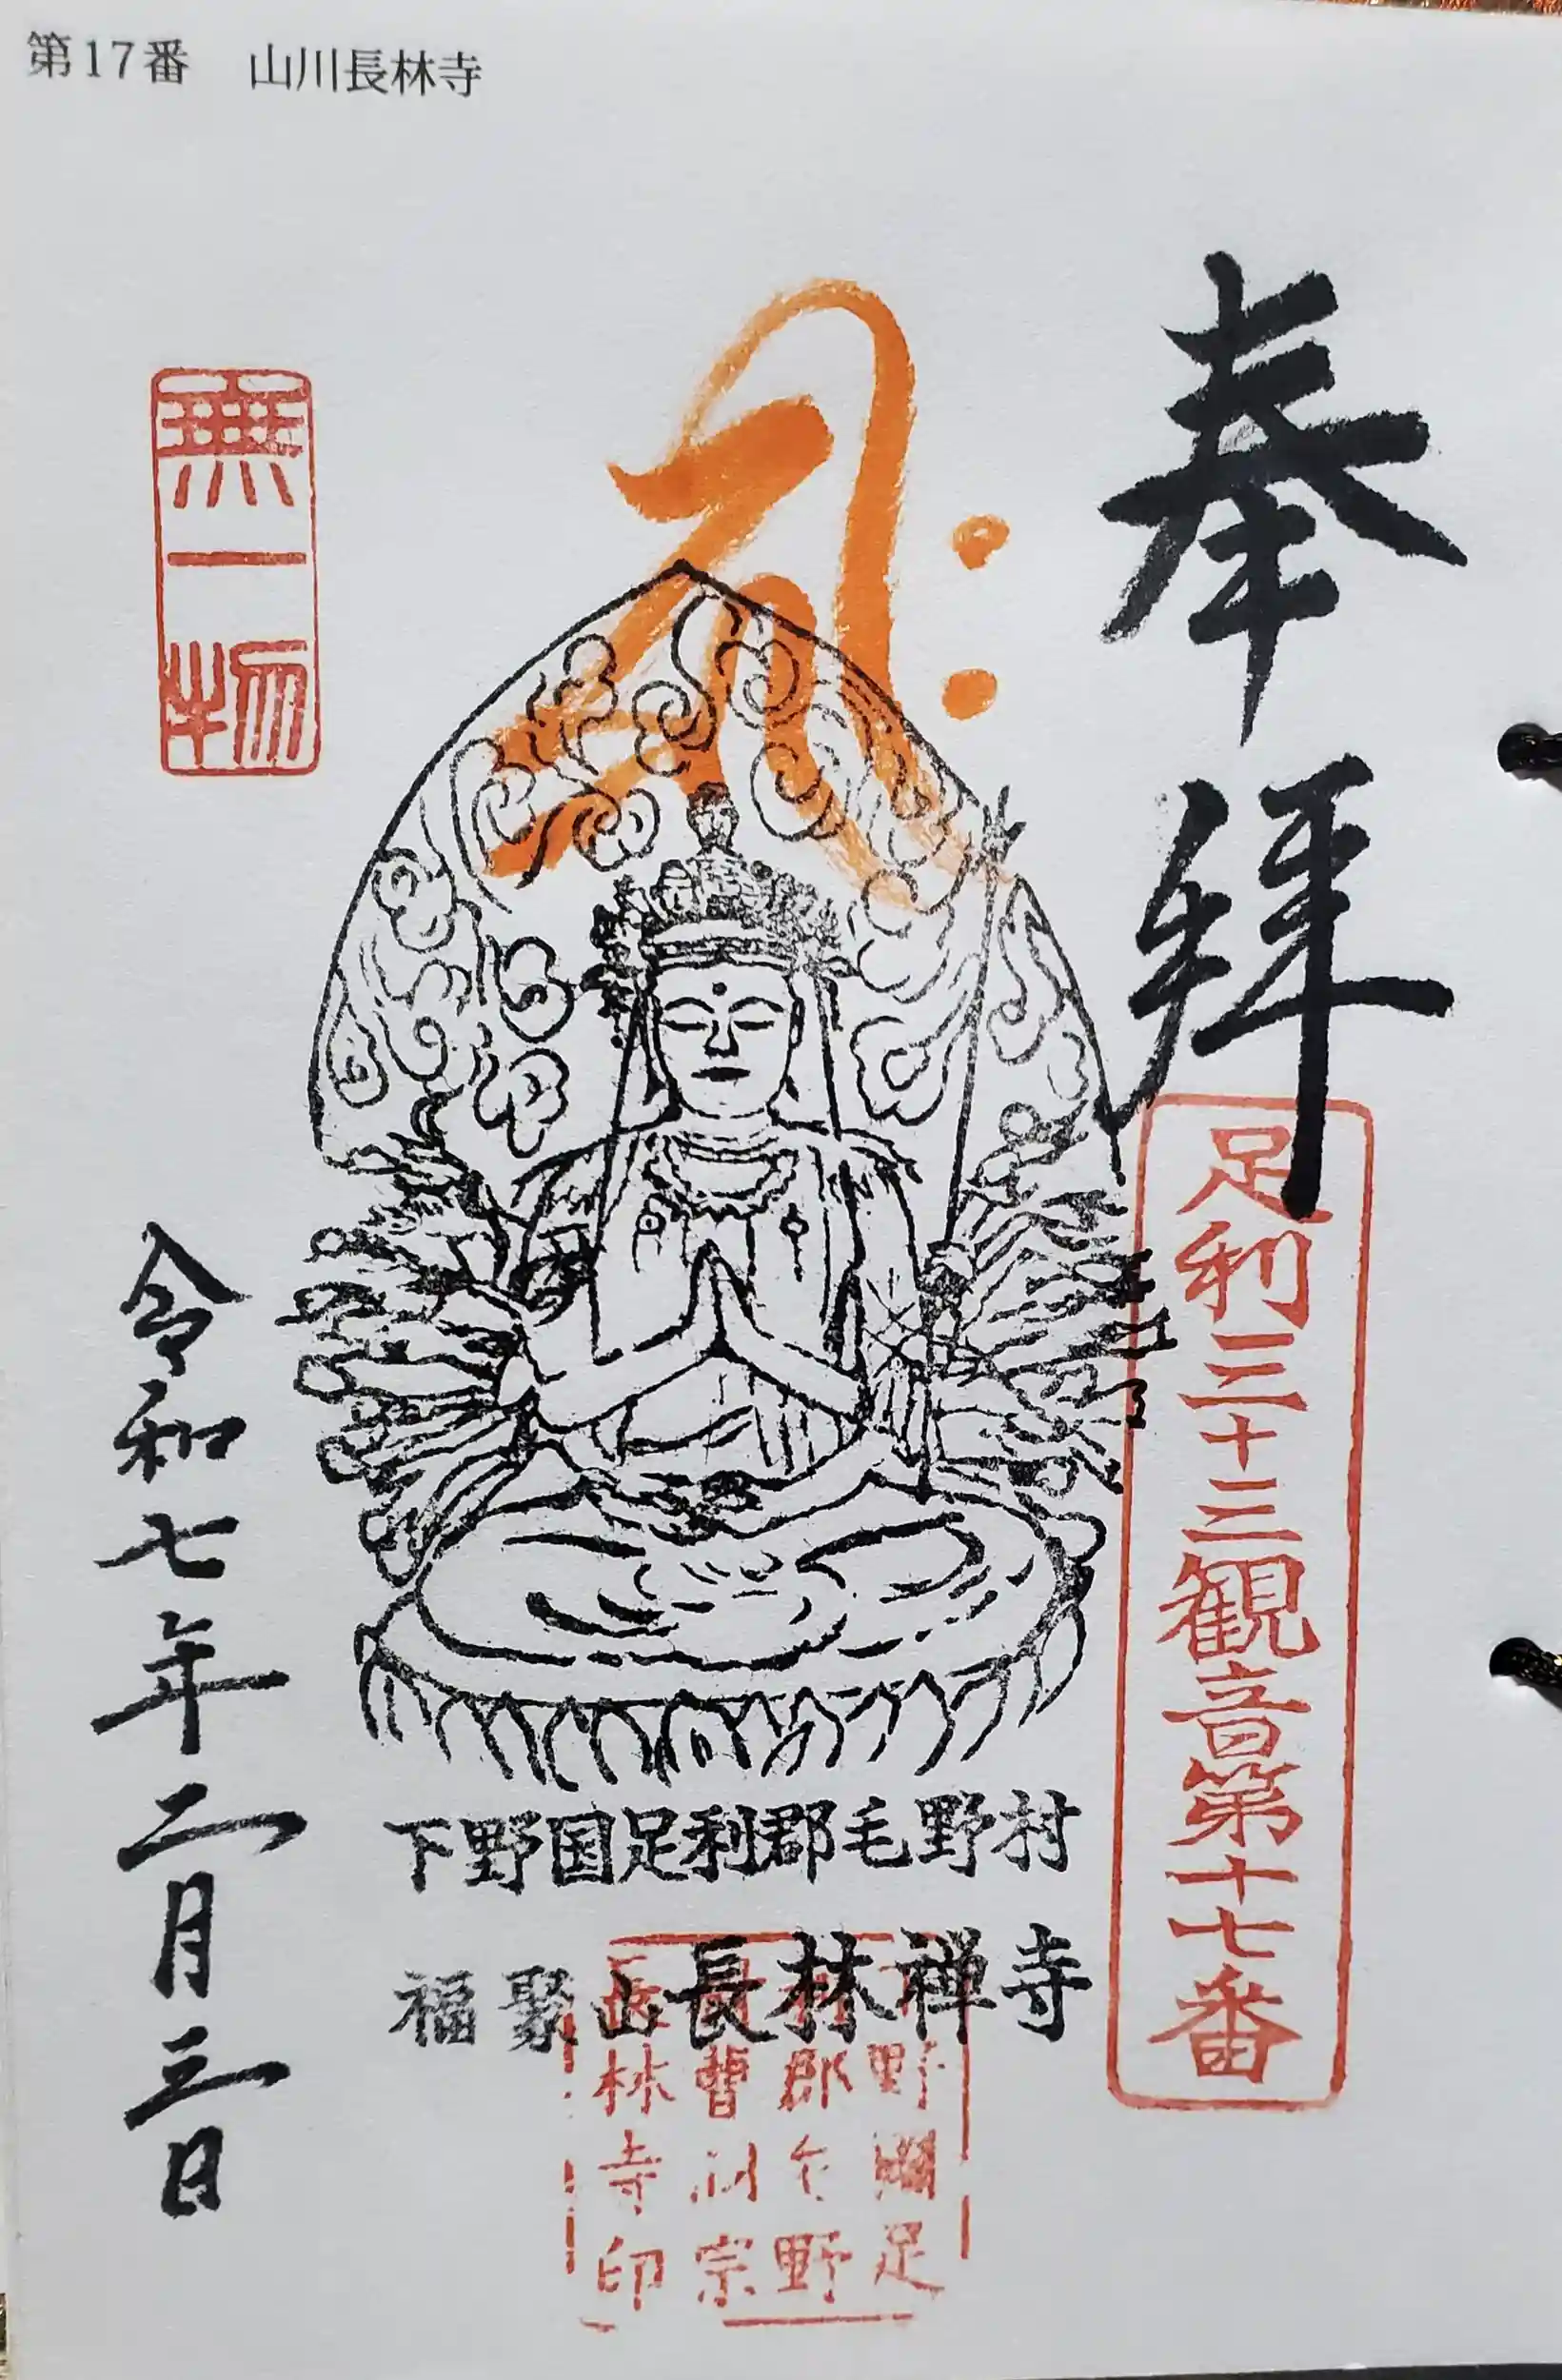 第17番　山川長林寺
奉拝
足利三十三観音第十七番
キリーク
無一物
下野国足利郡毛野村
福聚山長林禅寺
野國足
郡毛野
曹洞宗
長林寺印
令和七年二月三日